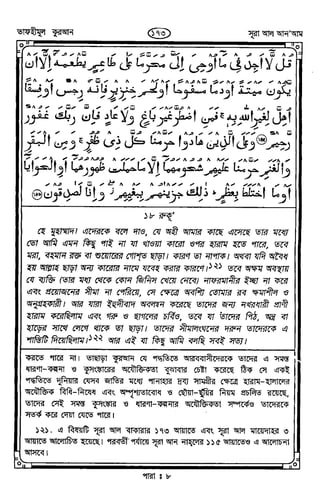 তাফহীমুল কুরআন
১৭৩
সূরা আল আন'আম
قُلْ لَّآ اَجِدُ فِيْ مَآ اُوْحِيَ اِلَيَّ مُحَرَّمًا عَلٰى طَاعِمٍ يَّطْعَمُهٗٓ اِلَّآ اَنْ
يَّكُوْنَ مَيْتَةً اَوْ دَمًا مَّسْفُوْحًا اَوْ لَحْمَ خِنْزِيْرٍ فَاِنَّهٗ رِجْسٌ اَوْ فِسْقًا
اُهِلَّ لِغَيْرِ اللّٰهِ بِهٖ ۚ فَمَنِ اضْطُرَّ غَيْرَ بَاغٍ وَّلَا عَادٍ فَاِنَّ رَبَّكَ غَفُوْرٌ
رَّحِيْمٌ ﴿١٤٥﴾ وَعَلَى الَّذِيْنَ هَادُوْا حَرَّمْنَا كُلَّ ذِيْ ظُفُرٍ ۚ وَمِنَ الْبَقَرِ
وَالْغَنَمِ حَرَّمْنَا عَلَيْهِمْ شُحُوْمَهُمَآ اِلَّا مَا حَمَلَتْ ظُهُوْرُهُمَآ اَوِ الْحَوَايَآ
اَوْ مَا اخْتَلَطَ بِعَظْمٍ ۭ ذٰلِكَ جَزَيْنٰهُمْ بِبَغْيِهِمْ ۡ وَاِنَّا لَصٰدِقُوْنَ ﴿١٤٦﴾
১৮ রুকূ'
হে মুহাম্মাদ! এদেরকে বলে দাও, যে অহী আমার কাছে এসেছে তার মধ্যে
তো আমি এমন কিছু পাই না যা খাওয়া কারো ওপর হারাম হতে পারে, তবে
মরা, বহমান রক্ত বা শুয়োরের গোশ্ত ছাড়া। কারণ তা নাপাক। অথবা যদি অবৈধ
হয় আল্লাহ ছাড়া অন্য কারোর নামে যবেহ করার কারণে।১২১ তবে অক্ষম অবস্থায়
যে ব্যক্তি (তার মধ্য থেকে কোন জিনিস খেয়ে নেবে) নাফরমানীর ইচ্ছা না করে
এবং প্রয়োজনের সীমা না পেরিয়ে, সে ক্ষেত্রে অবশ্যি তোমার রব ক্ষমাশীল ও
অনুগ্রহকারী। আর যারা ইহুদীবাদ অবলম্বন করেছে তাদের জন্য নখরধারী প্রাণী
হারাম করেছিলাম এবং গরু ও ছাগলের চর্বিও, তবে যা তাদের পিঠ, অন্ত্র বা
হাড়ের সাথে লেগে থাকে তা ছাড়া। তাদের সীমালংঘনের দরুন তাদেরকে এ
শাস্তিটি দিয়েছিলাম।১২২ আর এই যা কিছু আমি বলছি সবই সত্য।
করতে পারে না। তাছাড়া কুরআন যে পদ্ধতিতে আরববাসীদেরকে তাদের এ সমস্ত
ধারণা-কল্পনা ও কুসংস্কারের অযৌক্তিকতা বুঝাবার চেষ্টা করেছে ঠিক সে একই
পদ্ধতিতে দুনিয়ার যেসব জাতির মধ্যে পানাহার দ্রব্য সামগ্রীর ক্ষেত্রে হারাম-হালালের
অযৌক্তিক বিধি-নিষেধ এবং অস্পৃশ্যতাবোধ ও ছোঁয়া-ছুঁয়ির নিয়ম প্রচলিত রয়েছে,
তাদের সেই সমস্ত কুসংস্কার ও ধারণা-কল্পনার অযৌক্তিকতা সম্পর্কেও তাদেরকে
সতর্ক করে দেয়া যেতে পারে।
১২১. এ বিষয়টি সূরা আল বাকারার ১৭৩ আয়াতে এবং সূরা আল মায়েদাহর ৩
আয়াতে আলোচিত হয়েছে। পরবর্তী পর্যায়ে সূরা আন নাহলের ১১৫ আয়াতেও এ আলোচনা
আসবে।
পারা : ৮